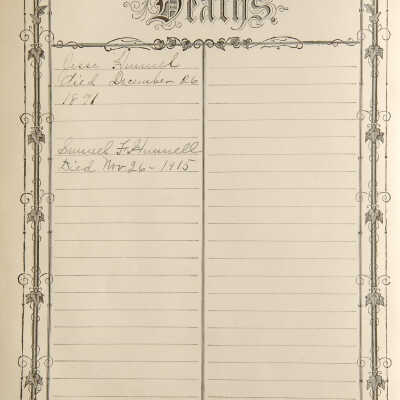 Deaths.
Jesse Hunnel
Died December 26
1871
Samuel F. Hunnell
Died Nov 26 - 1915